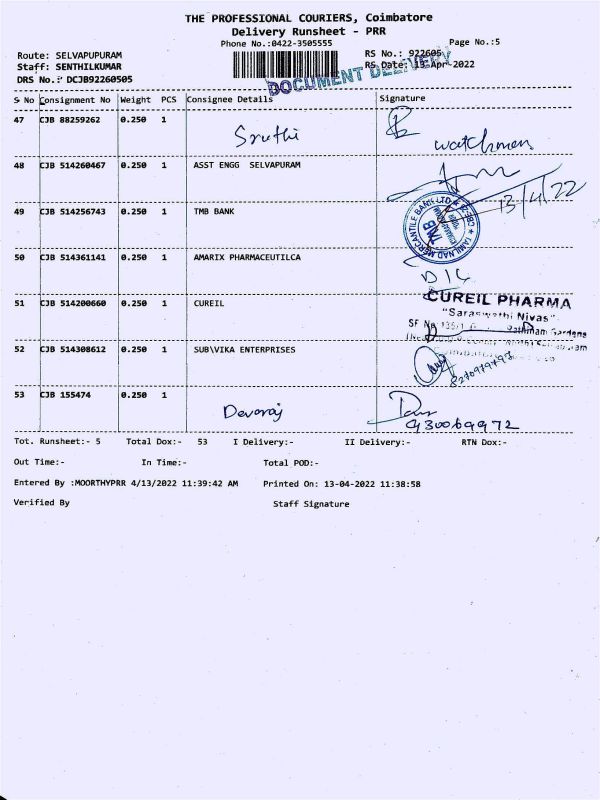 THE PROFESSIONAL COURIERS, Coimbatore
Delivery Runsheet - PRR
Phone No.:0422-3505555 Page No.:5
Route: SELVAPUPURAM RS No.: 922605
Staff: SENTHILKUMAR RS Date: 13-Apr-2022
DOCUMENT DELIVERY
DRS No.: DCJB92260505
S No Consignment No Weight PCS Consignee Details Signature
47 CJB 88259262 0.250 1 Sruthi watchmen
48 CJB 514260467 0.250 1 ASST ENGG SELVAPURAM
13/4/22
49 CJB 514256743 0.250 1 TMB BANK
TAMIL NAD MERCANTILE BANK LTD TMB
50 CJB 514361141 0.250 1 AMARIX PHARMACEUTILCA
51 CJB 514200660 0.250 1 CUREIL
CUREIL PHARMA
"Saraswathi Nivas"
SF No Gardens
52 CJB 514308612 0.250 1 SUB\VIKA ENTERPRISES
53 CJB 155474 0.250 1 Devaraj
Tot. Runsheet:- 5 Total Dox:- 53 I Delivery:- II Delivery:- RTN Dox:-
Out Time:- In Time:- Total POD:-
Entered By :MOORTHYPRR 4/13/2022 11:39:42 AM Printed On: 13-04-2022 11:38:58
Verified By Staff Signature